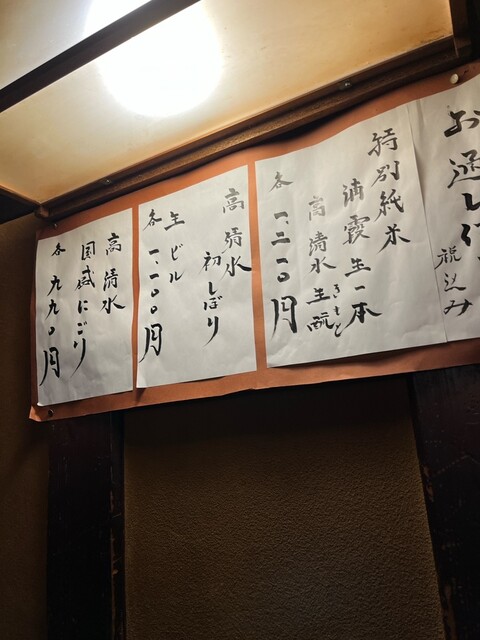 お通し付
税込み
特別純米
浦霞生一本
高清水生酛
きもと
各一、二一〇円
高清水
初しぼり
生ビール
各一、一〇〇円
高清水
国盛にごり
各九九〇円